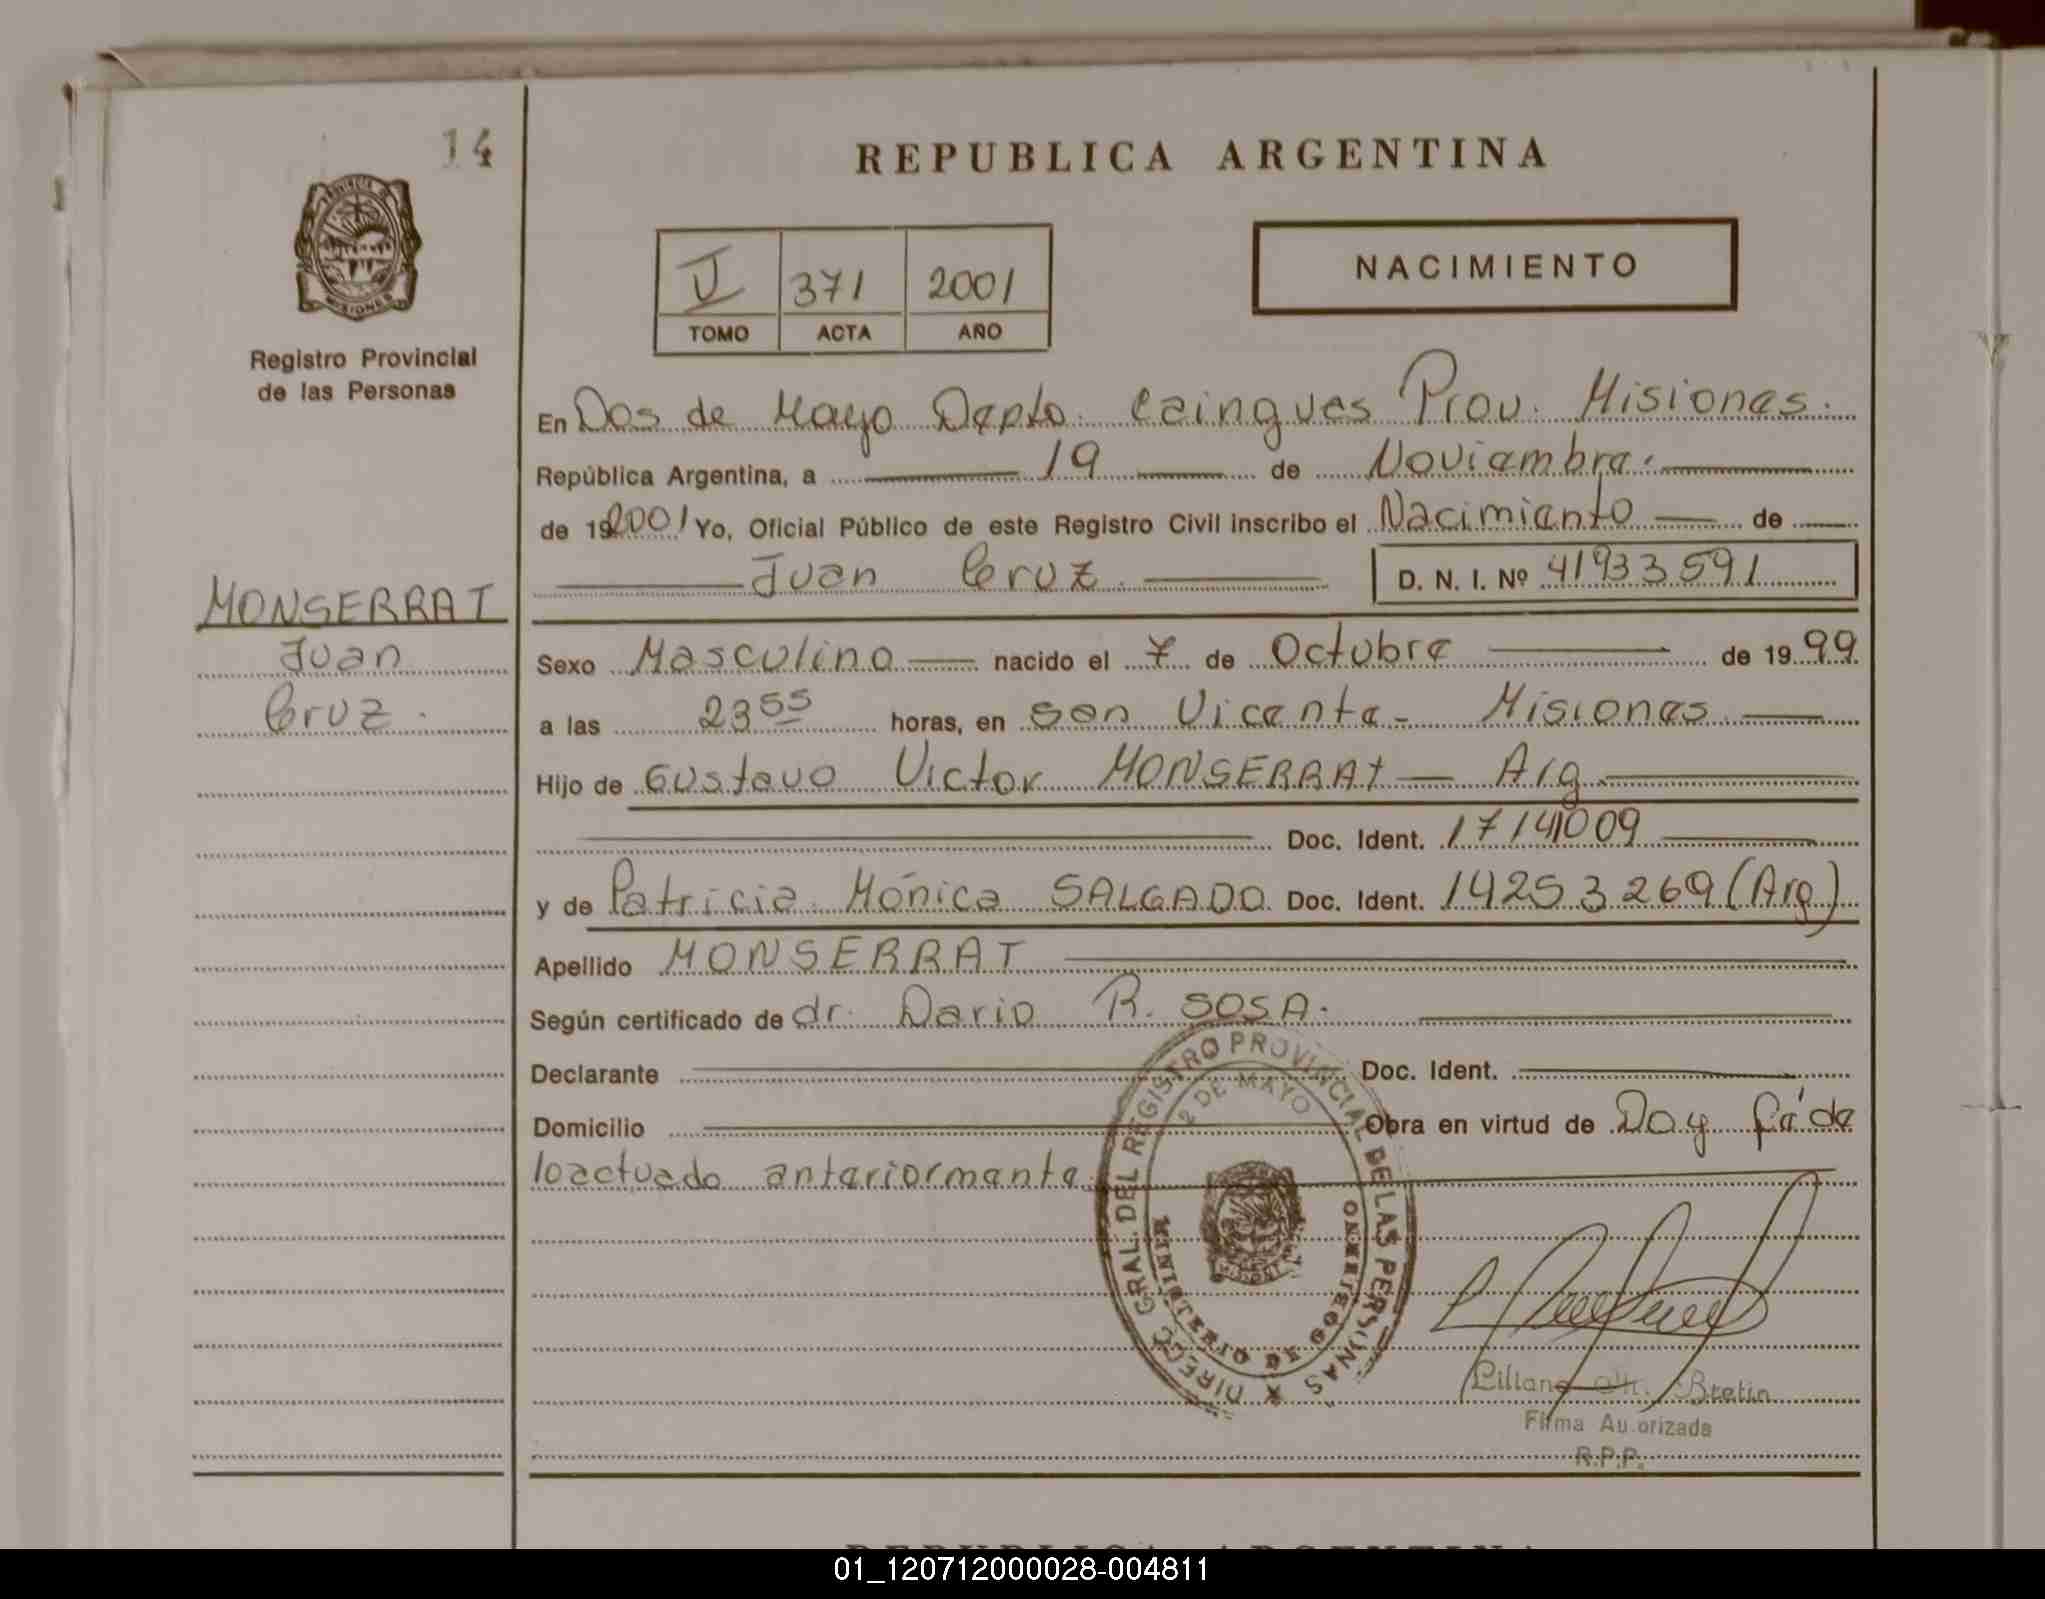 14
REPUBLICA ARGENTINA
PROVINCIA DE
MISIONES
Registro Provincial
de las Personas
371 2001
TOMO ACTA AÑO
NACIMIENTO
En Dos de Mayo Depto. Cainguas Prov. Misiones.
República Argentina, a 19 de Noviembre.
de 19 2001 Yo, Oficial Público de este Registro Civil inscribo el Nacimiento de
Juan Cruz. D. N. I. Nº 41933591
MONSERRAT
Juan
Cruz.
Sexo Masculino nacido el 7 de Octubre de 19 99
a las 23 55 horas, en San Vicente - Misiones
Hijo de Gustavo Victor MONSERRAT - Arg
Doc. Ident. 17141009
y de Patricia Mónica SALGADO Doc. Ident. 14253269 (Arg)
Apellido MONSERRAT
Según certificado de dr. Dario R. SOSA.
Declarante Doc. Ident.
Domicilio Obra en virtud de Doy fé de
lo actuado anteriormente
DIREGC GRAL. DEL REGISTRO PROVINCIAL DE LAS PERSONAS
2 DE MAYO
MINISTERIO DE GOBIERNO
Liliana Bretin
Firma Autorizada
R.P.P.
REPUBLICA ARGENTINA
01_120712000028-004811